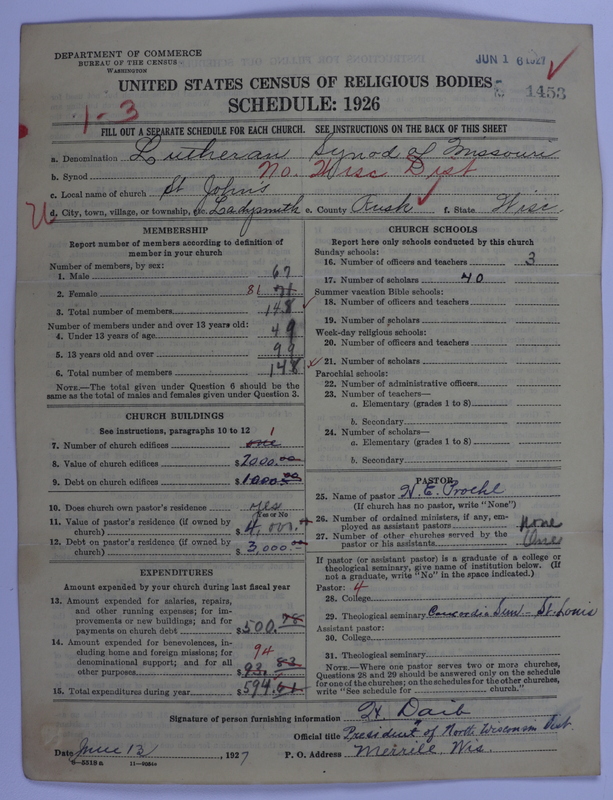 DEPARTMENT OF COMMERCE
BUREAU OF THE CENSUS
WASHINGTON
JUN 16 1927
1453
UNITED STATES CENSUS OF RELIGIOUS BODIES
SCHEDULE: 1926
1-3
FILL OUT A SEPARATE SCHEDULE FOR EACH CHURCH. SEE INSTRUCTIONS ON THE BACK OF THIS SHEET
a. Denomination Lutheran Synod of Missouri
b. Synod No. Wisc Dist
c. Local name of church St Johns
d. City, town, village, or township, etc. Ladysmith e. County Rusk f. State Wisc.
MEMBERSHIP
Report number of members according to definition of member in your church
Number of members, by sex:
1. Male 67
2. Female 81
3. Total number of members 148
Number of members under and over 13 years old:
4. Under 13 years of age 49
5. 13 years old and over 99
6. Total number of members 148
NOTE.—The total given under Question 6 should be the same as the total of males and females given under Question 3.
CHURCH BUILDINGS
See instructions, paragraphs 10 to 12
7. Number of church edifices one 1
8. Value of church edifices $ 7000.00
9. Debt on church edifices $ 1000.00
10. Does church own pastor's residence yes
Yes or No
11. Value of pastor's residence (if owned by church) $ 4,000.
12. Debt on pastor's residence (if owned by church) $ 3,000.
EXPENDITURES
Amount expended by your church during last fiscal year
13. Amount expended for salaries, repairs, and other running expenses; for improvements or new buildings; and for payments on church debt $ 500.78
14. Amount expended for benevolences, including home and foreign missions; for denominational support; and for all other purposes 94 $ 93.83
15. Total expenditures during year $ 594.61
CHURCH SCHOOLS
Report here only schools conducted by this church
Sunday schools:
16. Number of officers and teachers 3
17. Number of scholars 40
Summer vacation Bible schools:
18. Number of officers and teachers
19. Number of scholars
Week-day religious schools:
20. Number of officers and teachers
21. Number of scholars
Parochial schools:
22. Number of administrative officers
23. Number of teachers—
a. Elementary (grades 1 to 8)
b. Secondary
24. Number of scholars—
a. Elementary (grades 1 to 8)
b. Secondary
PASTOR
25. Name of pastor H. E. Proehl
(If church has no pastor, write "None")
26. Number of ordained ministers, if any, employed as assistant pastors None
27. Number of other churches served by the pastor or his assistants One
If pastor (or assistant pastor) is a graduate of a college or theological seminary, give name of institution below. (If not a graduate, write "No" in the space indicated.)
Pastor: 4
28. College
29. Theological seminary Concordia Sem - St. Louis
Assistant pastor:
30. College
31. Theological seminary
NOTE.—Where one pastor serves two or more churches, Questions 28 and 29 should be answered only on the schedule for one of the churches; on the schedules for the other churches, write "See schedule for church."
Signature of person furnishing information H Daib
Official title President of North Wisconsin Dist.
Date June 12, 1927 P. O. Address Merrill Wis.
8-5518a